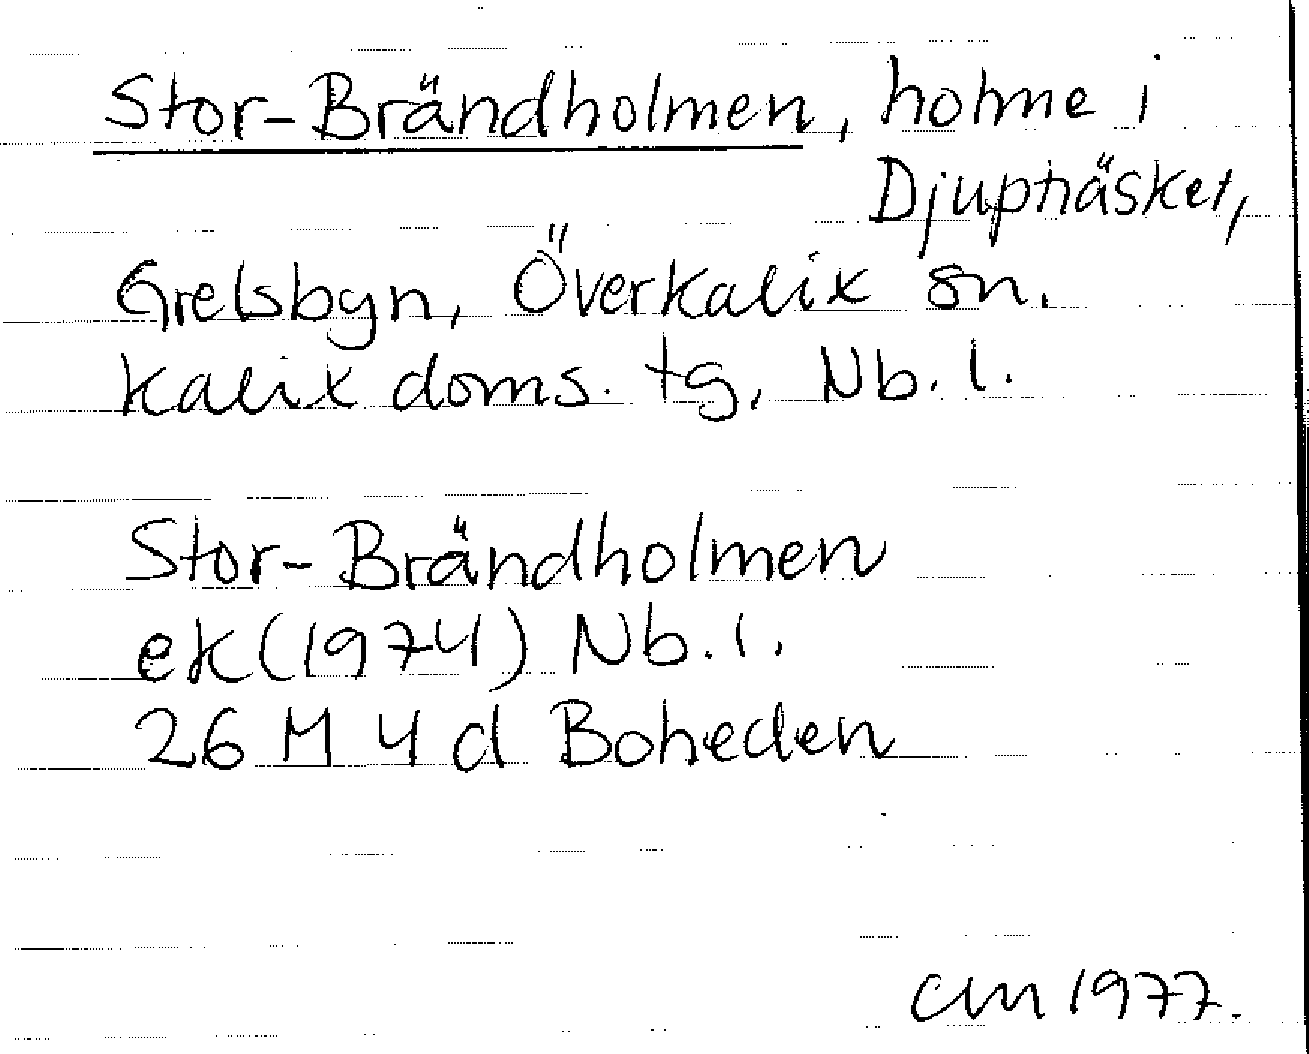 Stor-Brändholmen, holme i
Djupträsket,
Grelsbyn, Överkalix sn.
Kalix doms. tg, Nb. l.
Stor-Brändholmen
ek (1974) Nb. l.
26 M 4 d Boheden
cm 1977.